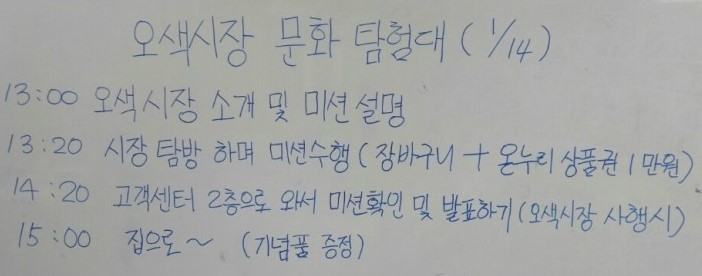 오색시장 문화 탐험대 (1/14)
13:00 오색시장 소개 및 미션 설명
13:20 시장 탐방 하며 미션수행 (장바구니 + 온누리 상품권 1만원)
14:20 고객센터 2층으로 와서 미션확인 및 발표하기 (오색시장 사행시)
15:00 집으로~ (기념품 증정)